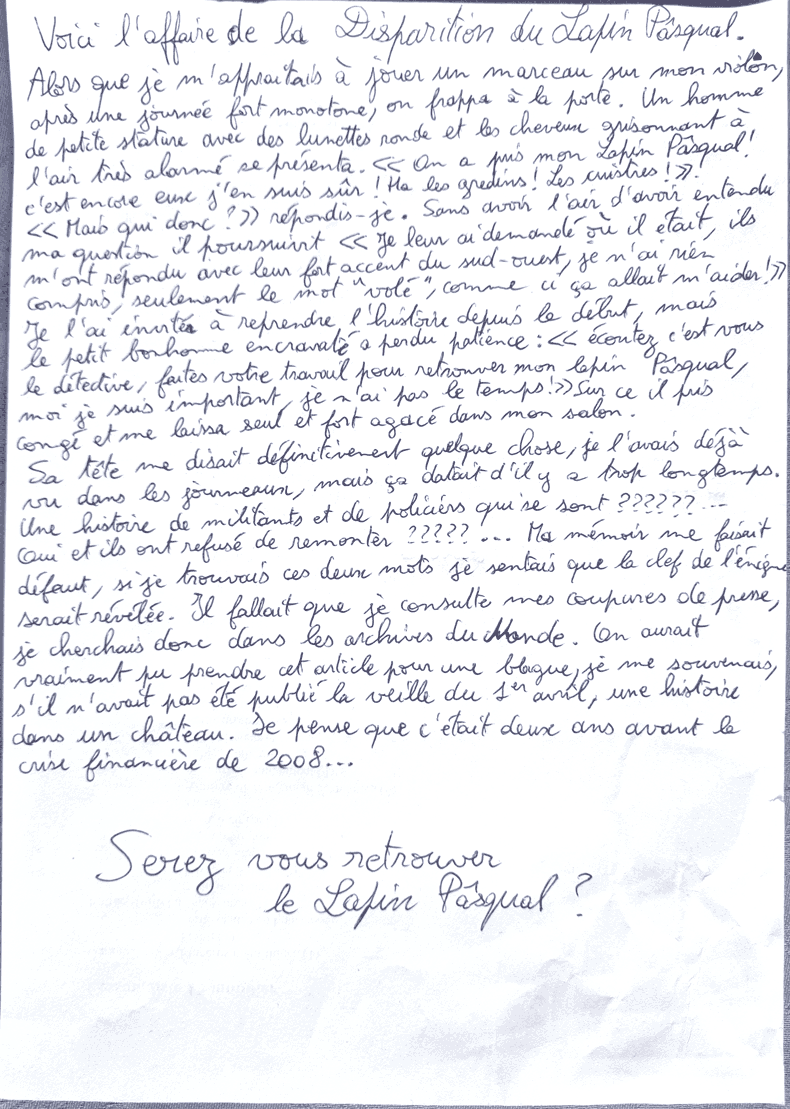 Voici l'affaire de la Disparition du Lapin Pâsqual.
Alors que je m'appraitais à jouer un marceau sur mon violon,
après une journée fort monotone, on frappa à la porte. Un homme
de petite stature avec des lunettes ronde et les cheveux grisonnant à
l'air très alarmé se présenta. << On a pris mon Lapin Pâsqual!
c'est encore eux j'en suis sûr ! Ha les gredins ! Les cuistres ! >>.
<< Mais qui donc ? >> répondis-je. Sans avoir l'air d'avoir entendu
ma question il poursuivit << Je leur ai demandé où il était, ils
m'ont répondu avec leur fort accent du sud-ouest, je n'ai rien
compris, seulement le mot "volé", comme ci ça allait m'aider! >>
Je l'ai invités à reprendre l'histoire depuis le début, mais
le petit bonhomme encravaté a perdu patience : << écoutez c'est vous
le détective, faites votre travail pour retrouver mon lapin Pâsqual,
moi je suis important, je n'ai pas le temps! >> Sur ce il pris
congé et me laissa seul et fort agacé dans mon salon.
Sa tête me disait définitivement quelque chose, je l'avais déjà
vu dans les journeaux, mais ça datait d'il y a trop longtemps.
Une histoire de militants et de policiers qui se sont ?????? ...
Oui et ils ont refusé de remonter ????? ... Ma mémoir me faisait
défaut, si je trouvais ces deux mots je sentais que la clef de l'énigme
serait révélée. Il fallait que je consulte mes coupures de presse,
je cherchais donc dans les archives du Monde. On aurait
vraiment pu prendre cet article pour une blague, je me souvenais,
s'il n'avait pas été publié la veille du 1er avril, une histoire
dans un château. Je pense que c'était deux ans avant la
crise financière de 2008...
Serez vous retrouver
le Lapin Pâsqual ?